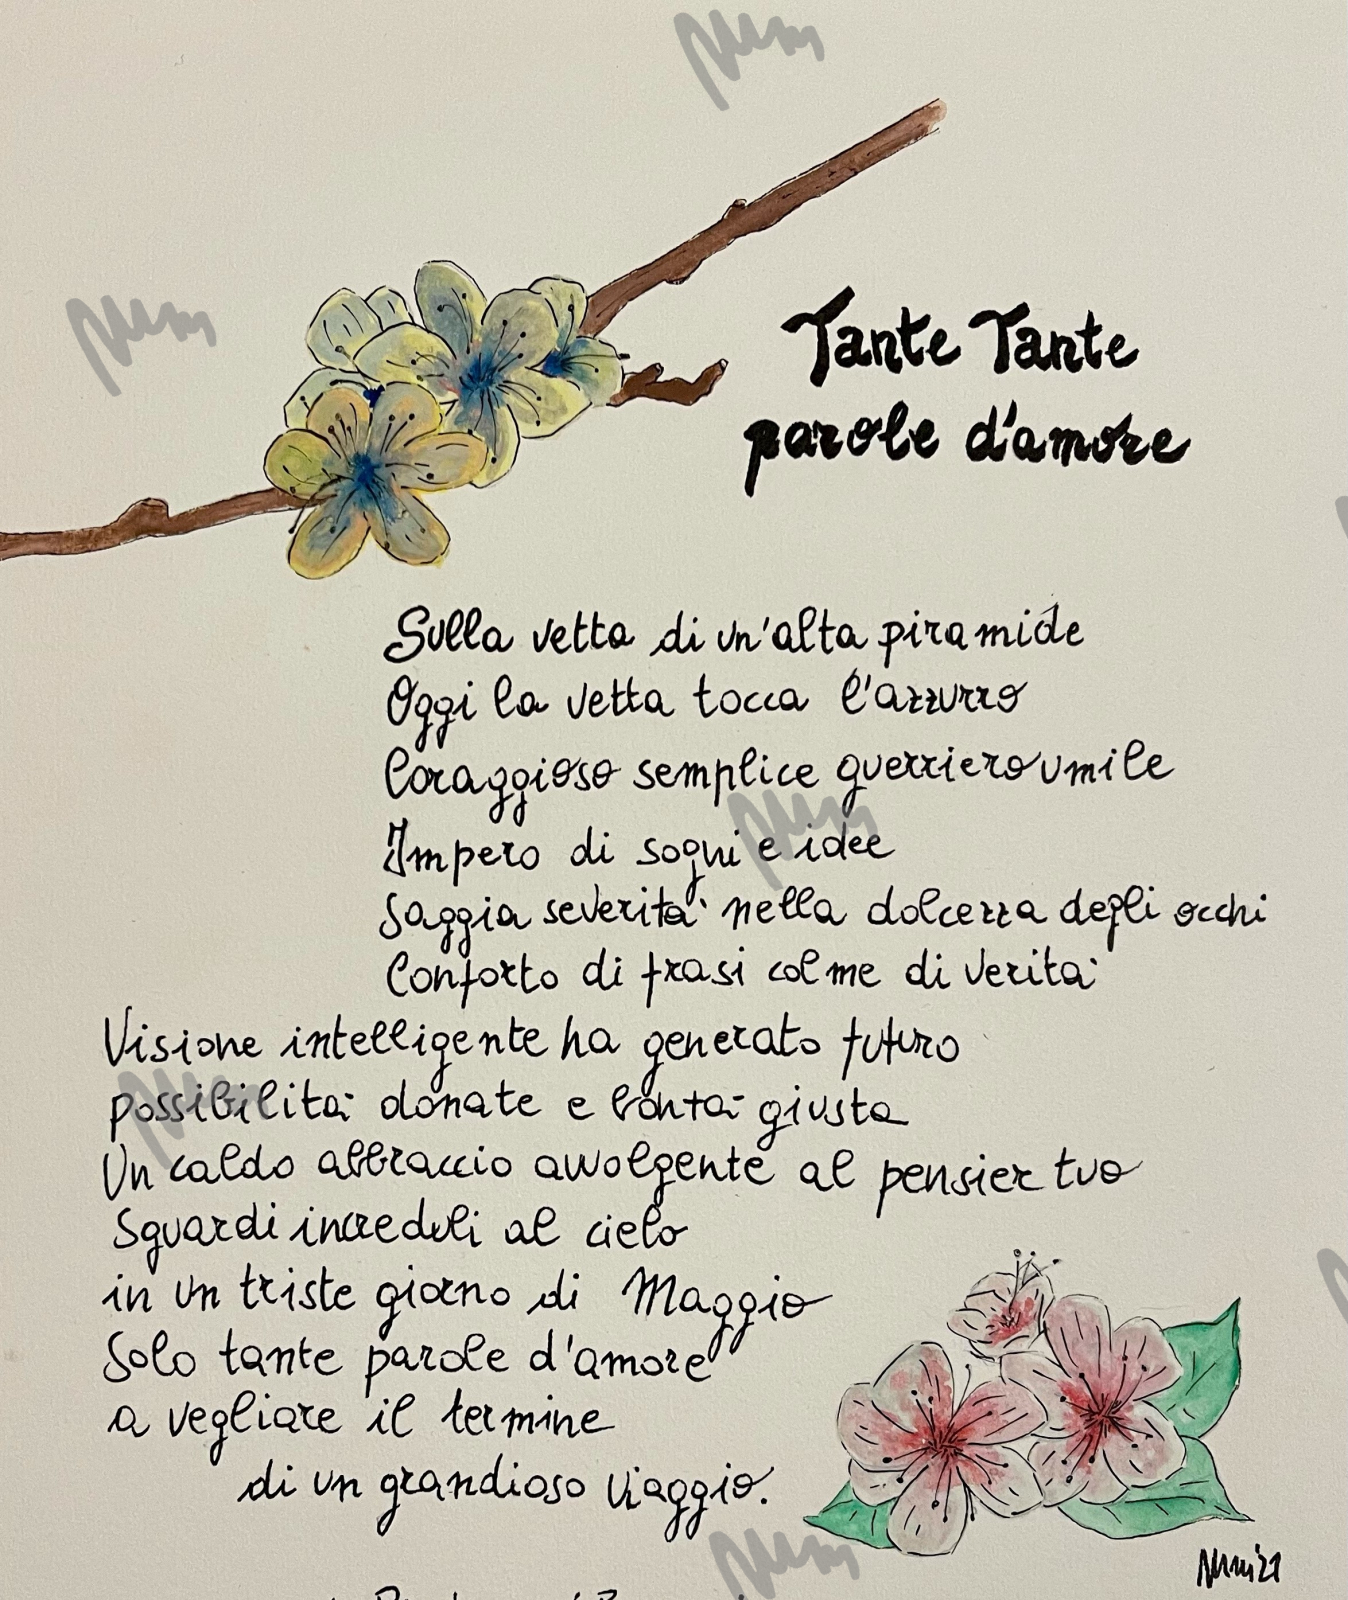 Tante Tante
parole d'amore
Sulla vetta di un'alta piramide
Oggi la vetta tocca l'azzurro
Coraggioso semplice guerriero umile
Impero di sogni e idee
Saggia severità nella dolcezza degli occhi
Conforto di frasi colme di verità
Visione intelligente ha generato futuro
possibilità donate e bontà giusta
Un caldo abbraccio avvolgente al pensier tuo
Sguardi increduli al cielo
in un triste giorno di Maggio
Solo tante parole d'amore
a vegliare il termine
di un grandioso viaggio.
'21